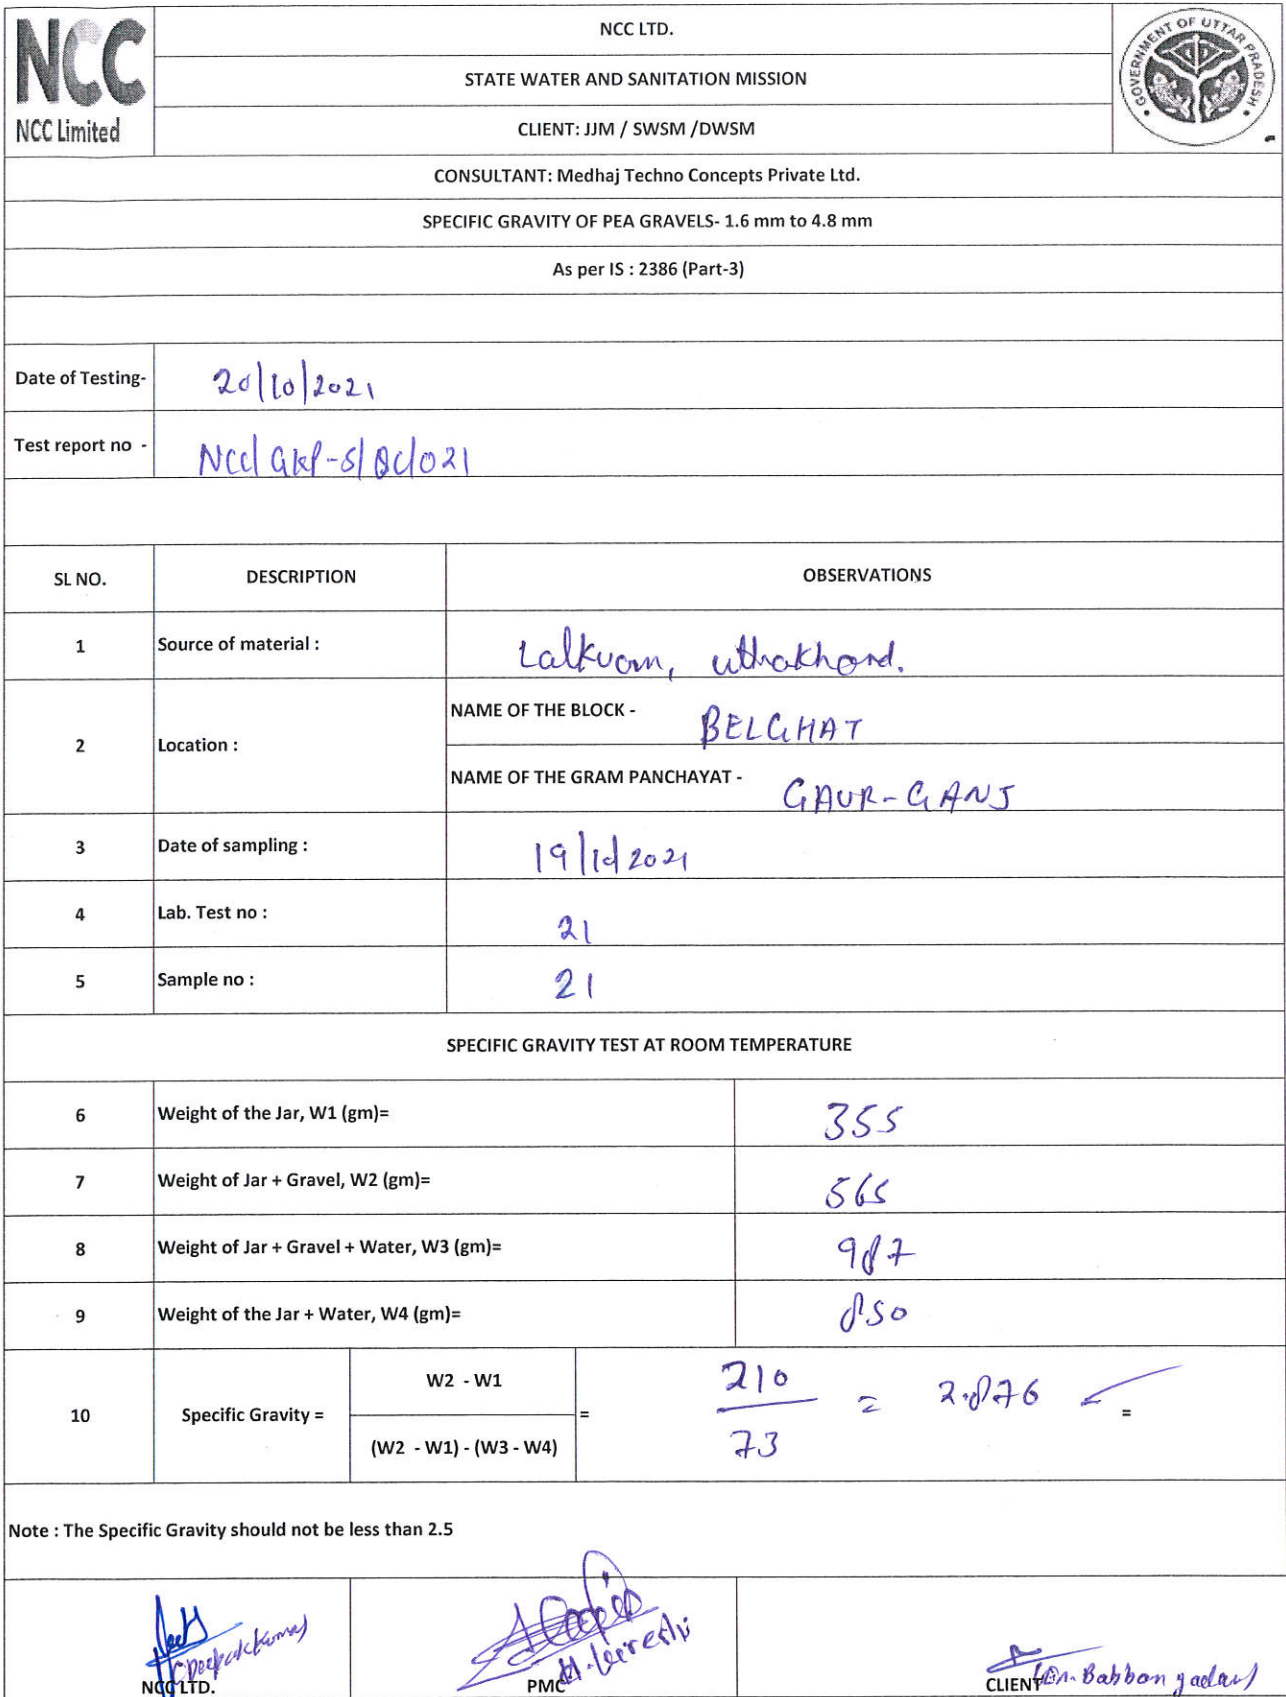 NCC
NCC Limited
NCC LTD.
STATE WATER AND SANITATION MISSION
CLIENT: JJM / SWSM /DWSM
GOVERNMENT OF UTTAR PRADESH
CONSULTANT: Medhaj Techno Concepts Private Ltd.
SPECIFIC GRAVITY OF PEA GRAVELS- 1.6 mm to 4.8 mm
As per IS : 2386 (Part-3)
Date of Testing- 20/10/2021
Test report no - NCC/GKP-S/QC/021
SL NO. DESCRIPTION OBSERVATIONS
1 Source of material : Lalkuam, uttrakhand.
2 Location : NAME OF THE BLOCK - BELGHAT
NAME OF THE GRAM PANCHAYAT - GAUR-GANJ
3 Date of sampling : 19/10/2021
4 Lab. Test no : 21
5 Sample no : 21
SPECIFIC GRAVITY TEST AT ROOM TEMPERATURE
6 Weight of the Jar, W1 (gm)= 355
7 Weight of Jar + Gravel, W2 (gm)= 565
8 Weight of Jar + Gravel + Water, W3 (gm)= 987
9 Weight of the Jar + Water, W4 (gm)= 850
10 Specific Gravity = W2 - W1 = 210 = 2.876 =
(W2 - W1) - (W3 - W4) 73
Note : The Specific Gravity should not be less than 2.5
(Deepak Kumar)
NCC LTD. PMC CLIENT (Er. Babban yadav)